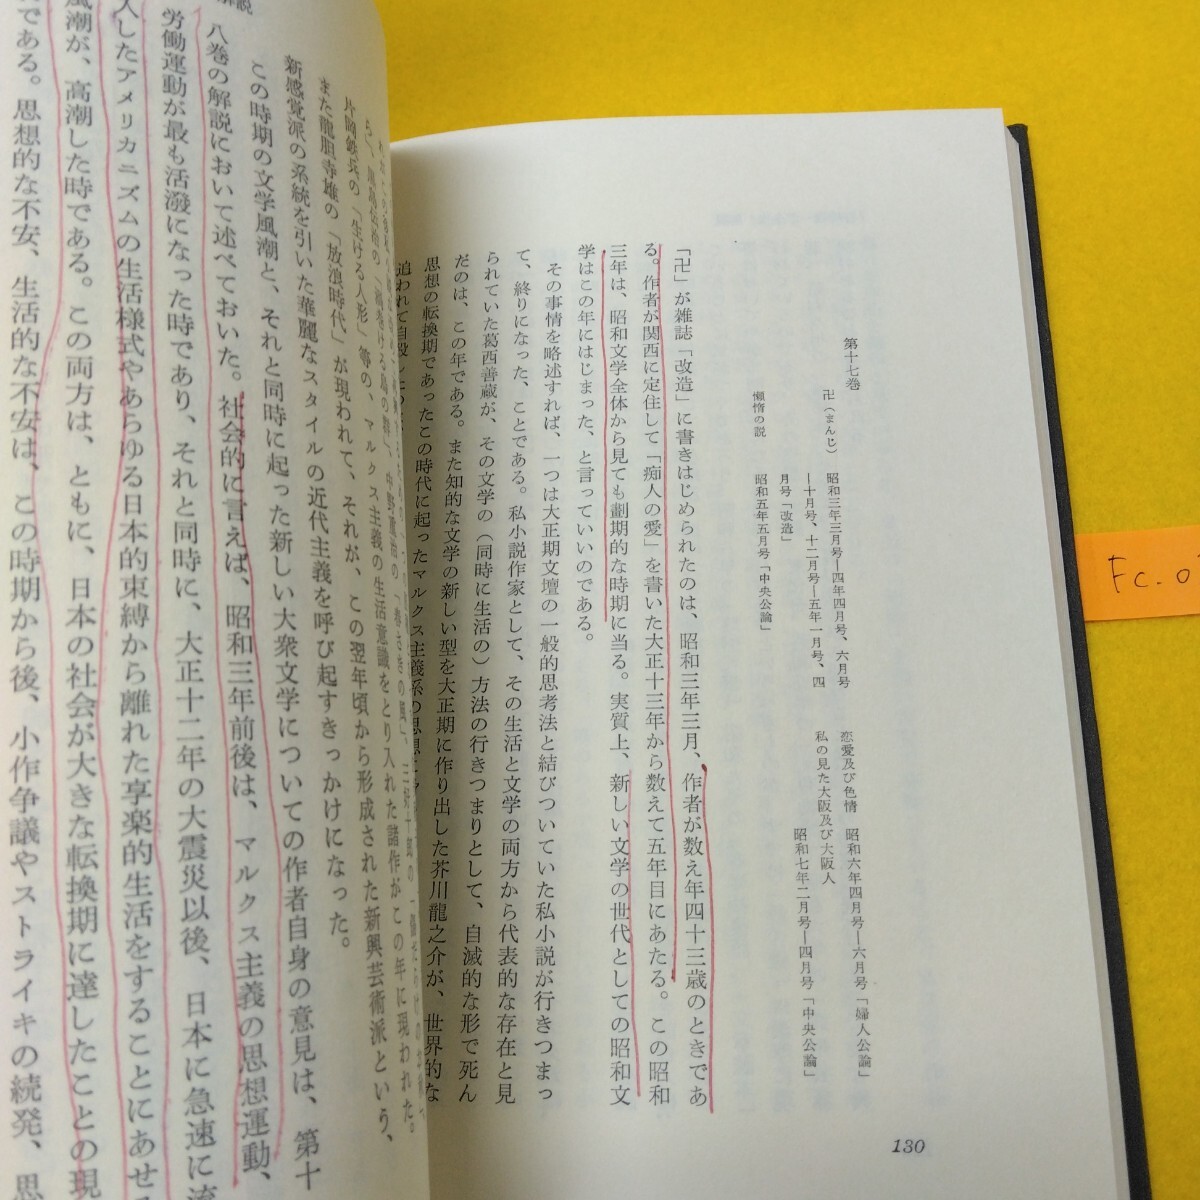 第十七巻
卍（まんじ）　昭和三年三月号―四年四月号、六月号
―十月号、十二月号―五年一月号、四
月号「改造」
懶惰の説　昭和五年五月号「中央公論」
恋愛及び色情　昭和六年四月号―六月号「婦人公論」
私の見た大阪及び大阪人
昭和七年二月号―四月号「中央公論」
「卍」が雑誌「改造」に書きはじめられたのは、昭和三年三月、作者が数え年四十三歳のときであ
る。作者が関西に定住して「痴人の愛」を書いた大正十三年から数えて五年目にあたる。この昭和
三年は、昭和文学全体から見ても劃期的な時期に当る。実質上、新しい文学の世代としての昭和文
学はこの年にはじまった、と言っていいのである。
その事情を略述すれば、一つは大正期文壇の一般的思考法と結びついていた私小説が行きつまっ
て、終りになった、ことである。私小説作家として、その生活と文学の両方から代表的な存在と見
られていた葛西善蔵が、その文学の（同時に生活の）方法の行きつまりとして、自滅的な形で死ん
だのは、この年である。また知的な文学の新しい型を大正期に作り出した芥川龍之介が、世界的な
思想の転換期であったこの時代に起ったマルクス主義系の思想
追われて自殺し
130
解説
片岡鉄兵の「生ける人形」等の、マルクス主義の生活意識をとり入れた諸作がこの年に現われた。
また龍胆寺雄の「放浪時代」が現われて、それが、この翌年頃から形成された新興芸術派という、
新感覚派の系統を引いた華麗なスタイルの近代主義を呼び起すきっかけになった。
この時期の文学風潮と、それと同時に起った新しい大衆文学についての作者自身の意見は、第十
八巻の解説において述べておいた。社会的に言えば、昭和三年前後は、マルクス主義の思想運動、
労働運動が最も活溌になった時であり、それと同時に、大正十二年の大震災以後、日本に急速に流
入したアメリカニズムの生活様式やあらゆる日本的束縛から離れた享楽的生活をすることにあせる
風潮が、高潮した時である。この両方は、ともに、日本の社会が大きな転換期に達したことの現
である。思想的な不安、生活的な不安は、この時期から後、小作争議やストライキの続発、思
Fc-0